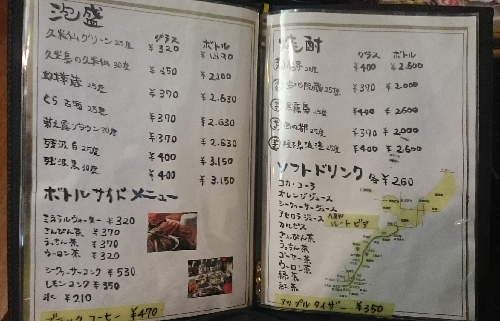 泡盛
グラス ボトル
久米仙グリーン25度 ¥320
久米島の久米仙 30度 ¥350 ¥2,100
25度 ¥370 ¥2,630
くら古酒 25度 ¥370 ¥2,630
菊之露ブラウン30度 ¥370 ¥2,630
残波 白 25度 ¥400 ¥3,150
残波 黒 30度 ¥400 ¥3,150
ボトルサイドメニュー
ミネラルウォーター ¥320
さんぴん茶 ¥370
うっちん茶 ¥370
ウーロン茶 ¥320
シークヮーサーコンク ¥530
レモンコンク ¥350
氷 ¥210
ブラックコーヒー ¥470
焼酎
グラス ボトル
25度 ¥400 ¥2,600
25度 ¥370 ¥2,000
黒霧島 25度 ¥400 ¥2,600
25度 ¥370 ¥2,000
25度 ¥400 ¥2,600
ソフトドリンク 各¥260
コカ・コーラ
オレンジジュース
シークヮーサージュース
アセロラジュース
カルピス
ルートビア
さんぴん茶
うっちん茶
ゴーヤー茶
ウーロン茶
緑茶
紅茶
アップルタイザー ¥350